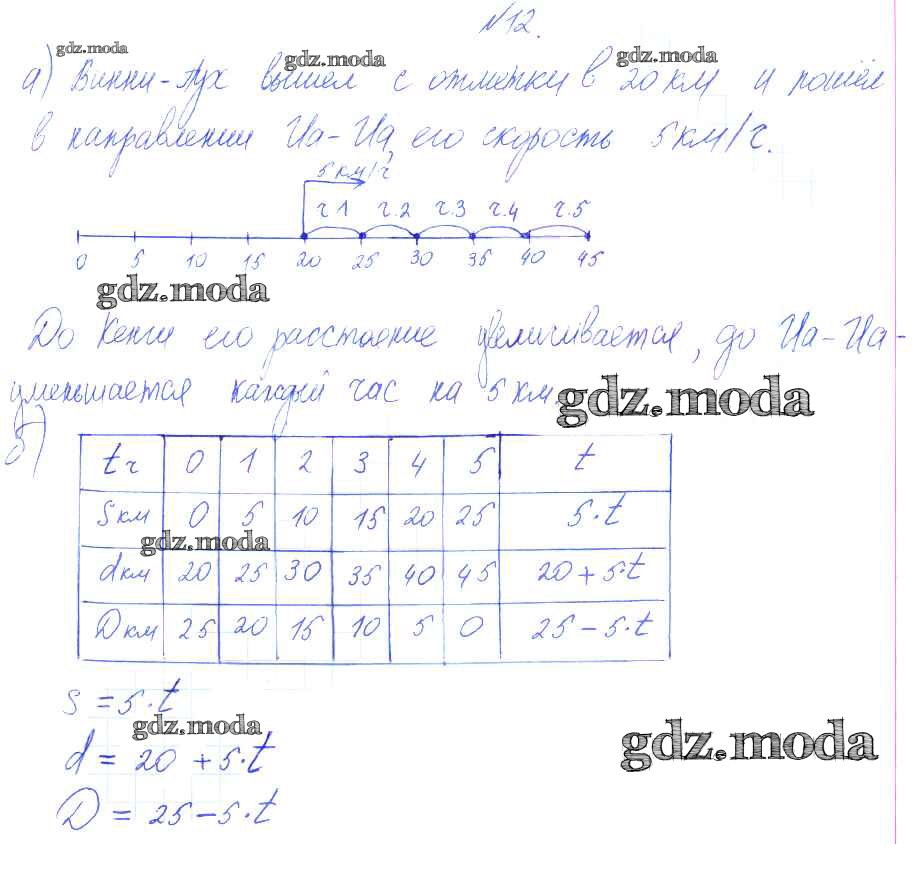 №12.
а) Винни-Пух вышел с отметки в 20 км и пошёл
в направлении Иа-Иа, его скорость 5 км/ч.
5 км/ч
ч.1 ч.2 ч.3 ч.4 ч.5
0 5 10 15 20 25 30 35 40 45
До Кенги его расстояние увеличивается, до Иа-Иа-
уменьшается каждый час на 5 км.
б)
t ч 0 1 2 3 4 5 t
s км 0 5 10 15 20 25 5·t
d км 20 25 30 35 40 45 20 + 5·t
D км 25 20 15 10 5 0 25 - 5·t
s = 5·t
d = 20 + 5·t
D = 25 - 5·t
gdz.moda
gdz.moda
gdz.moda
gdz.moda
gdz.moda
gdz.moda
gdz.moda
gdz.moda